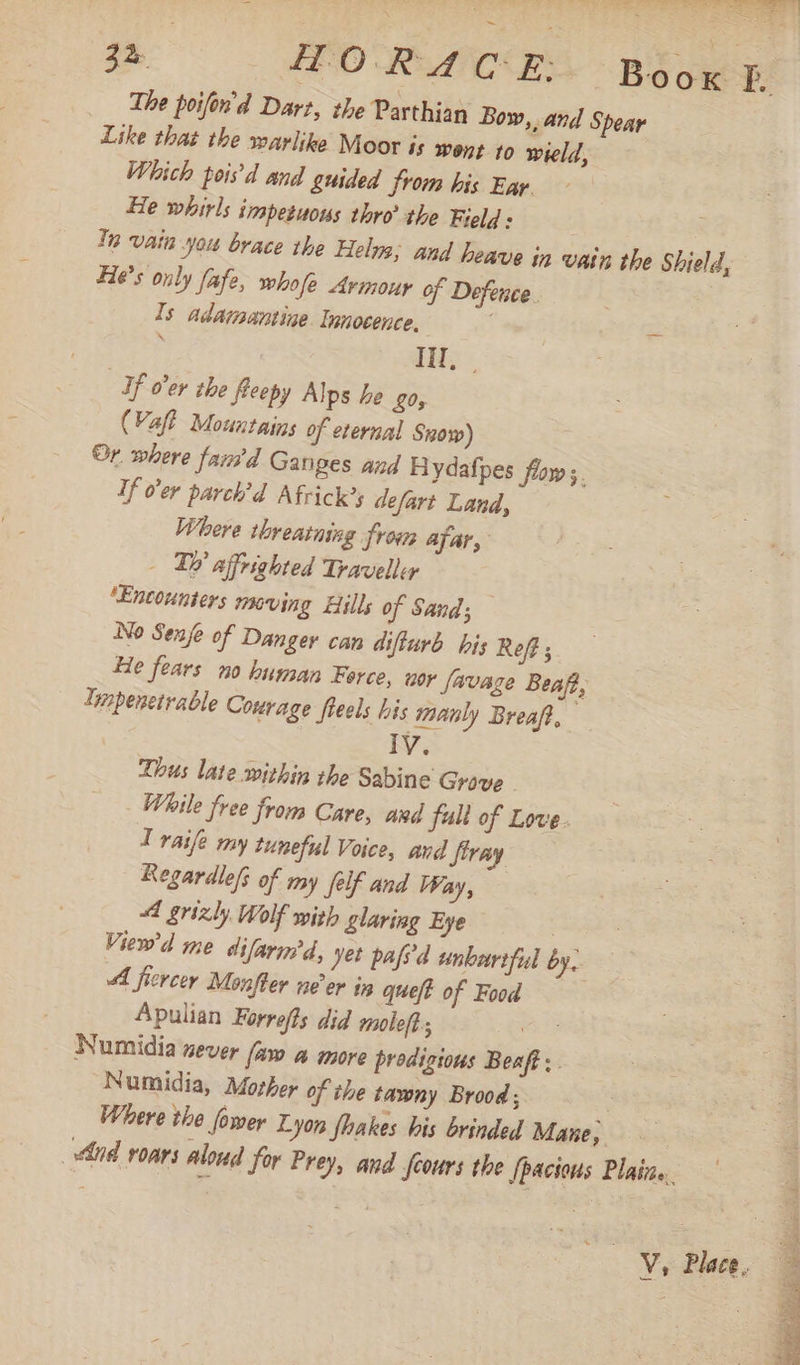 32 HORACE. Book I.
The poiſon'd Dart, the Parthian Bow, and Spear
Like that the warlike Moor is wont to wield,
Which pois'd and guided from his Ear
He whirls impetuous thro' the Field:
In vain you brace the Helm, and heave in vain the Shield,
He's only ſafe, whoſe Armour of Defence
Is adamantine Innocence.
III.
If o'er the ſteepy Alps he go,
(Vaſt Mountains of eternal Snow)
Or where fam'd Ganges and Hydaſpes flow;
If o'er parch'd Africk's deſart Land,
Where threatning from afar,
Th' affrighted Traveller
Encounters moving Hills of Sand;
No Senſe of Danger can diſturb his Reſt;
He fears no human Force, nor ſavage Beaſt,
Impenetrable Courage ſteels his manly Breaſt.
IV.
Thus late within the Sabine Grove
While free from Care, and full of Love
I raiſe my tuneful Voice, and ſtray
Regardleſs of my ſelf and Way,
A grizly Wolf with glaring Eye
View'd me diſarm'd, yet paſs'd unhurtful by.
A fiercer Monſter ne'er in queſt of Food
Apulian Forreſts did moleſt;
Numidia never ſaw a more prodigious Beaſt;
Numidia, Mother of the tawny Brood;
Where the ſower Lyon ſhakes his brinded Mane,
And roars aloud for Prey, and ſcours the ſpacious Plain.
V, Place,